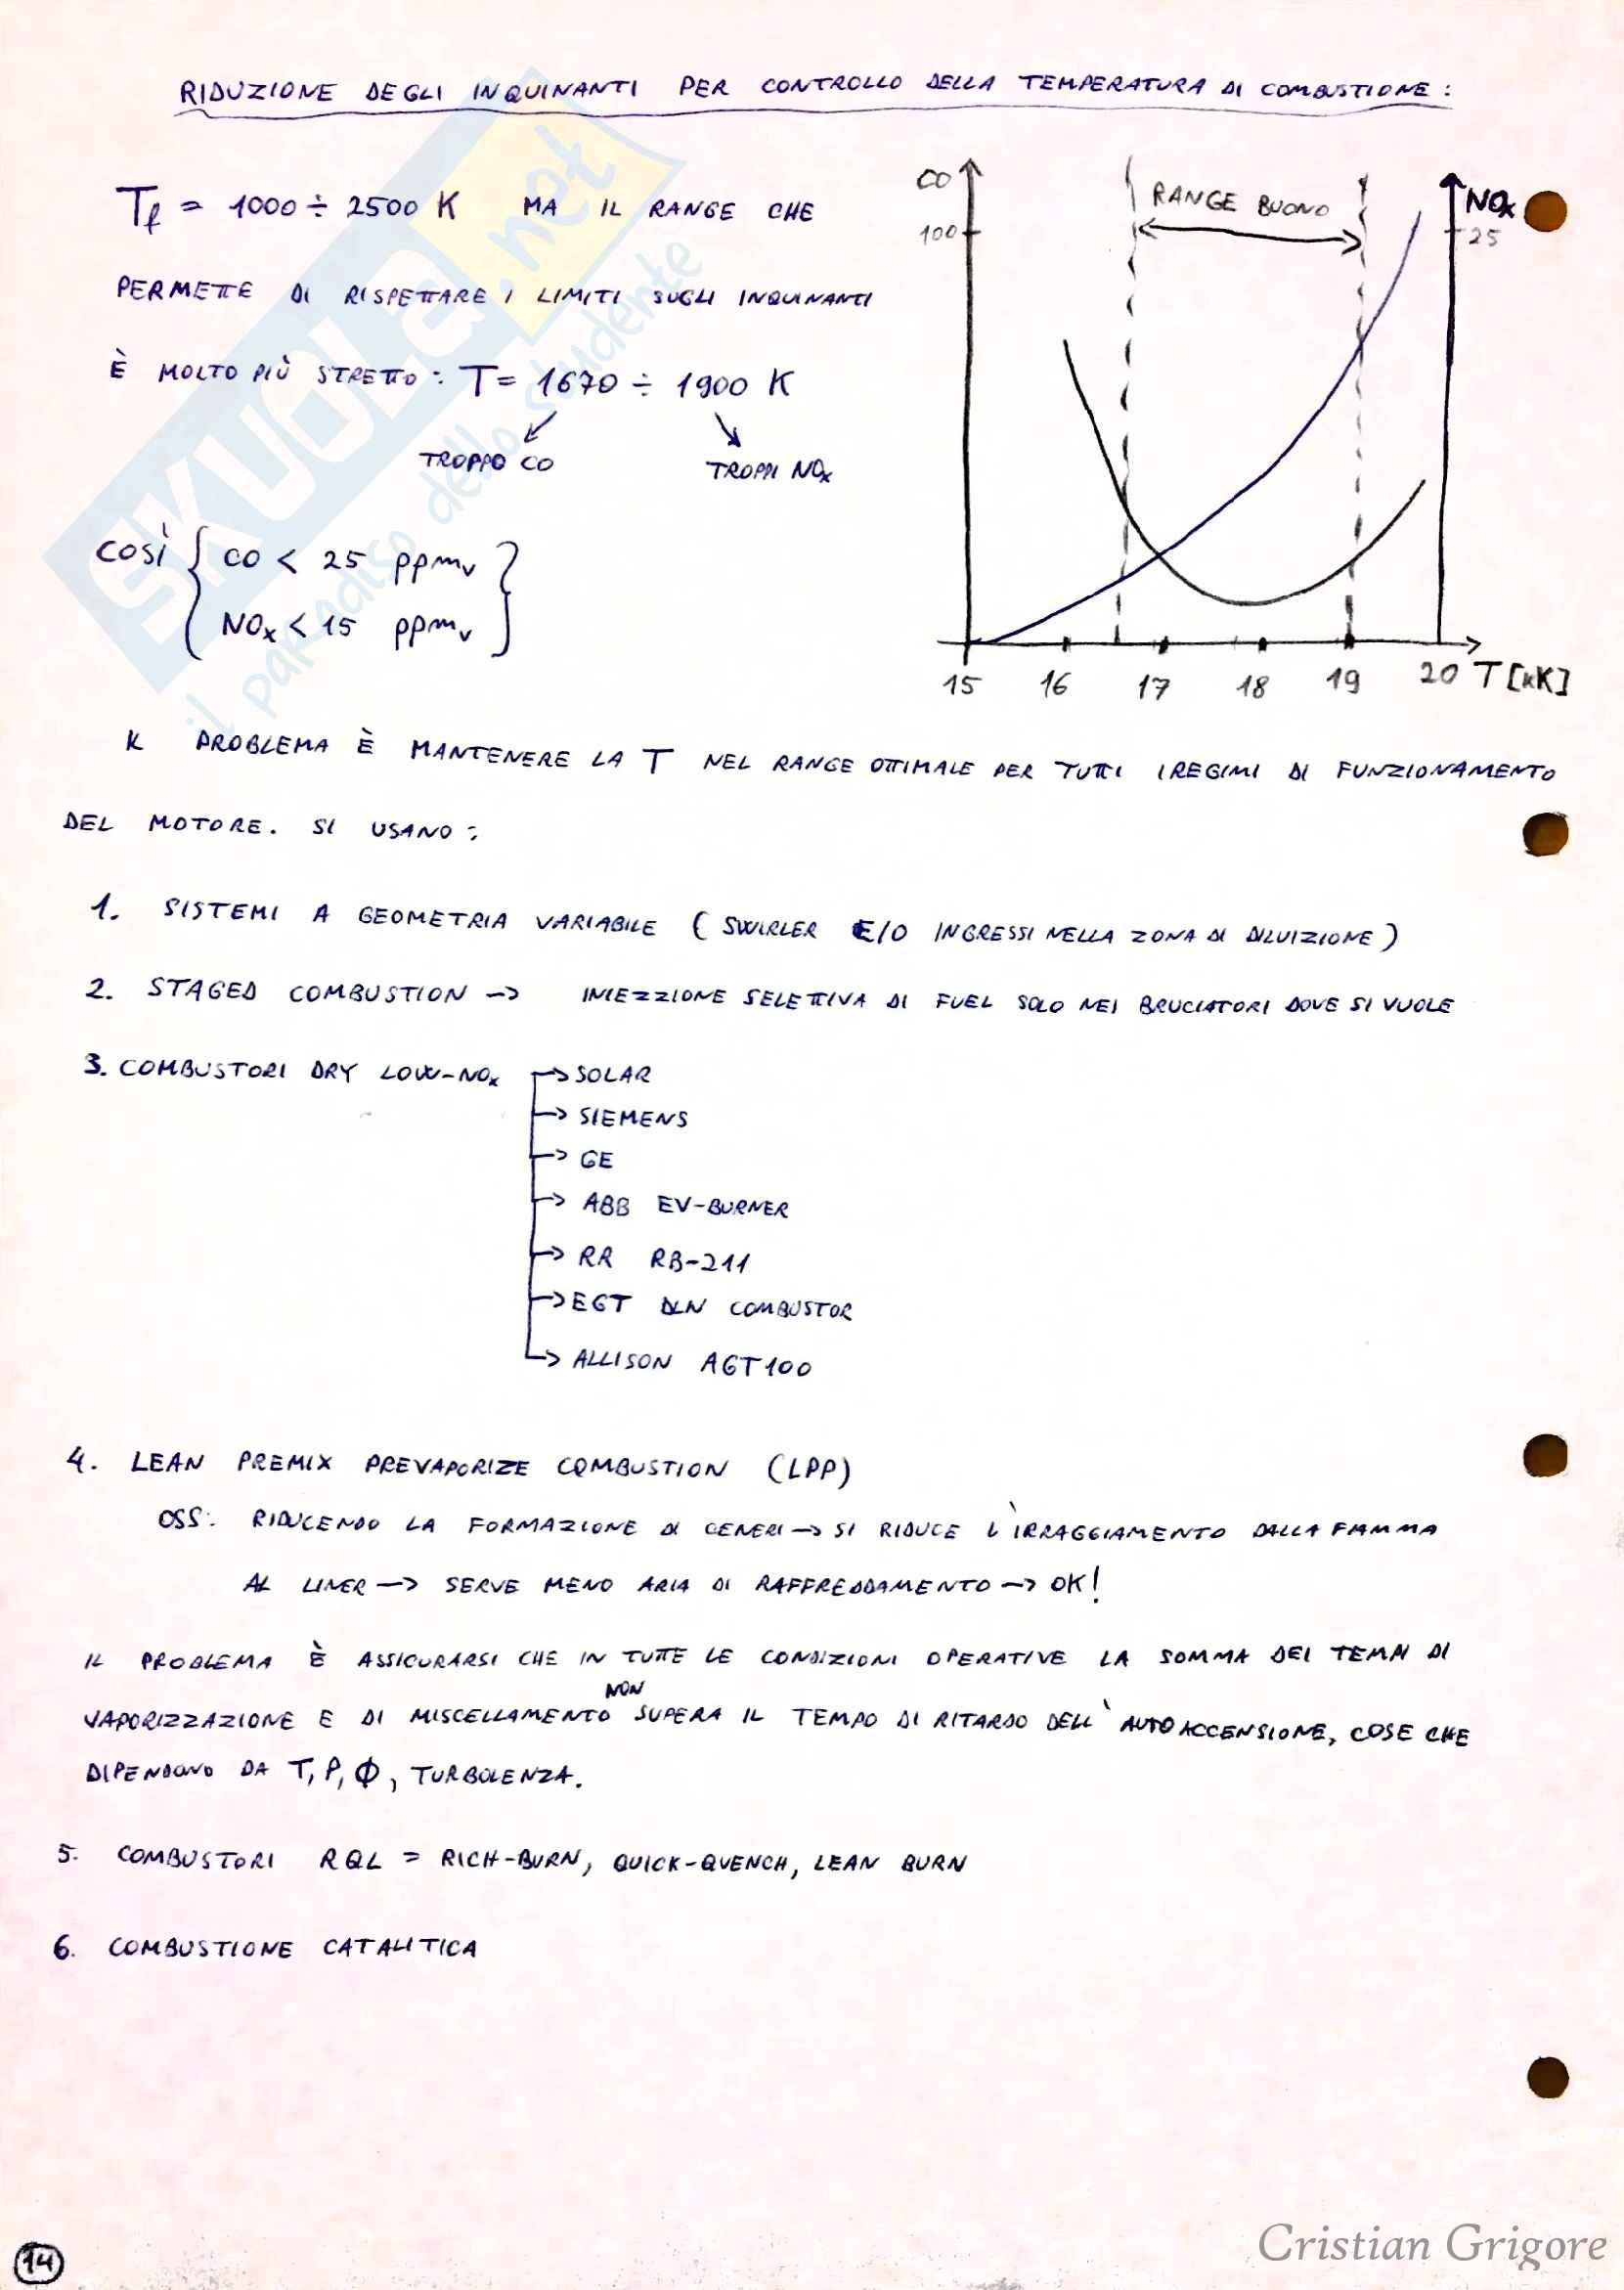 RIDUZIONE DEGLI INQUINANTI PER CONTROLLO DELLA TEMPERATURA DI COMBUSTIONE:
Tf = 1000 ÷ 2500 K MA IL RANGE CHE
PERMETTE DI RISPETTARE I LIMITI SUGLI INQUINANTI
È MOLTO PIÙ STRETTO: T = 1670 ÷ 1900 K
TROPPO CO TROPPI NOx
COSÌ { CO < 25 ppmv
NOx < 15 ppmv }
CO
100
RANGE BUONO
NOx
25
15 16 17 18 19 20 T [kK]
IL PROBLEMA È MANTENERE LA T NEL RANGE OTTIMALE PER TUTTI I REGIMI DI FUNZIONAMENTO
DEL MOTORE. SI USANO:
1. SISTEMI A GEOMETRIA VARIABILE (SWIRLER E/O INGRESSI NELLA ZONA DI DILUIZIONE)
2. STAGED COMBUSTION -> INIEZZIONE SELETTIVA DI FUEL SOLO NEI BRUCIATORI DOVE SI VUOLE
3. COMBUSTORI DRY LOW-NOx -> SOLAR
-> SIEMENS
-> GE
-> ABB EV-BURNER
-> RR RB-211
-> EGT DLN COMBUSTOR
-> ALLISON AGT100
4. LEAN PREMIX PREVAPORIZE COMBUSTION (LPP)
OSS: RIDUCENDO LA FORMAZIONE DI CENERI -> SI RIDUCE L'IRRAGGIAMENTO DALLA FIAMMA
AL LINER -> SERVE MENO ARIA DI RAFFREDDAMENTO -> OK!
IL PROBLEMA È ASSICURARSI CHE IN TUTTE LE CONDIZIONI OPERATIVE LA SOMMA DEI TEMPI DI
VAPORIZZAZIONE E DI MISCELLAMENTO NON SUPERA IL TEMPO DI RITARDO DELL'AUTOACCENSIONE, COSE CHE
DIPENDONO DA T, P, Φ, TURBOLENZA.
5. COMBUSTORI RQL = RICH-BURN, QUICK-QUENCH, LEAN BURN
6. COMBUSTIONE CATALITICA
14
Cristian Grigore
SKUOLA.net
il paradiso dello studente